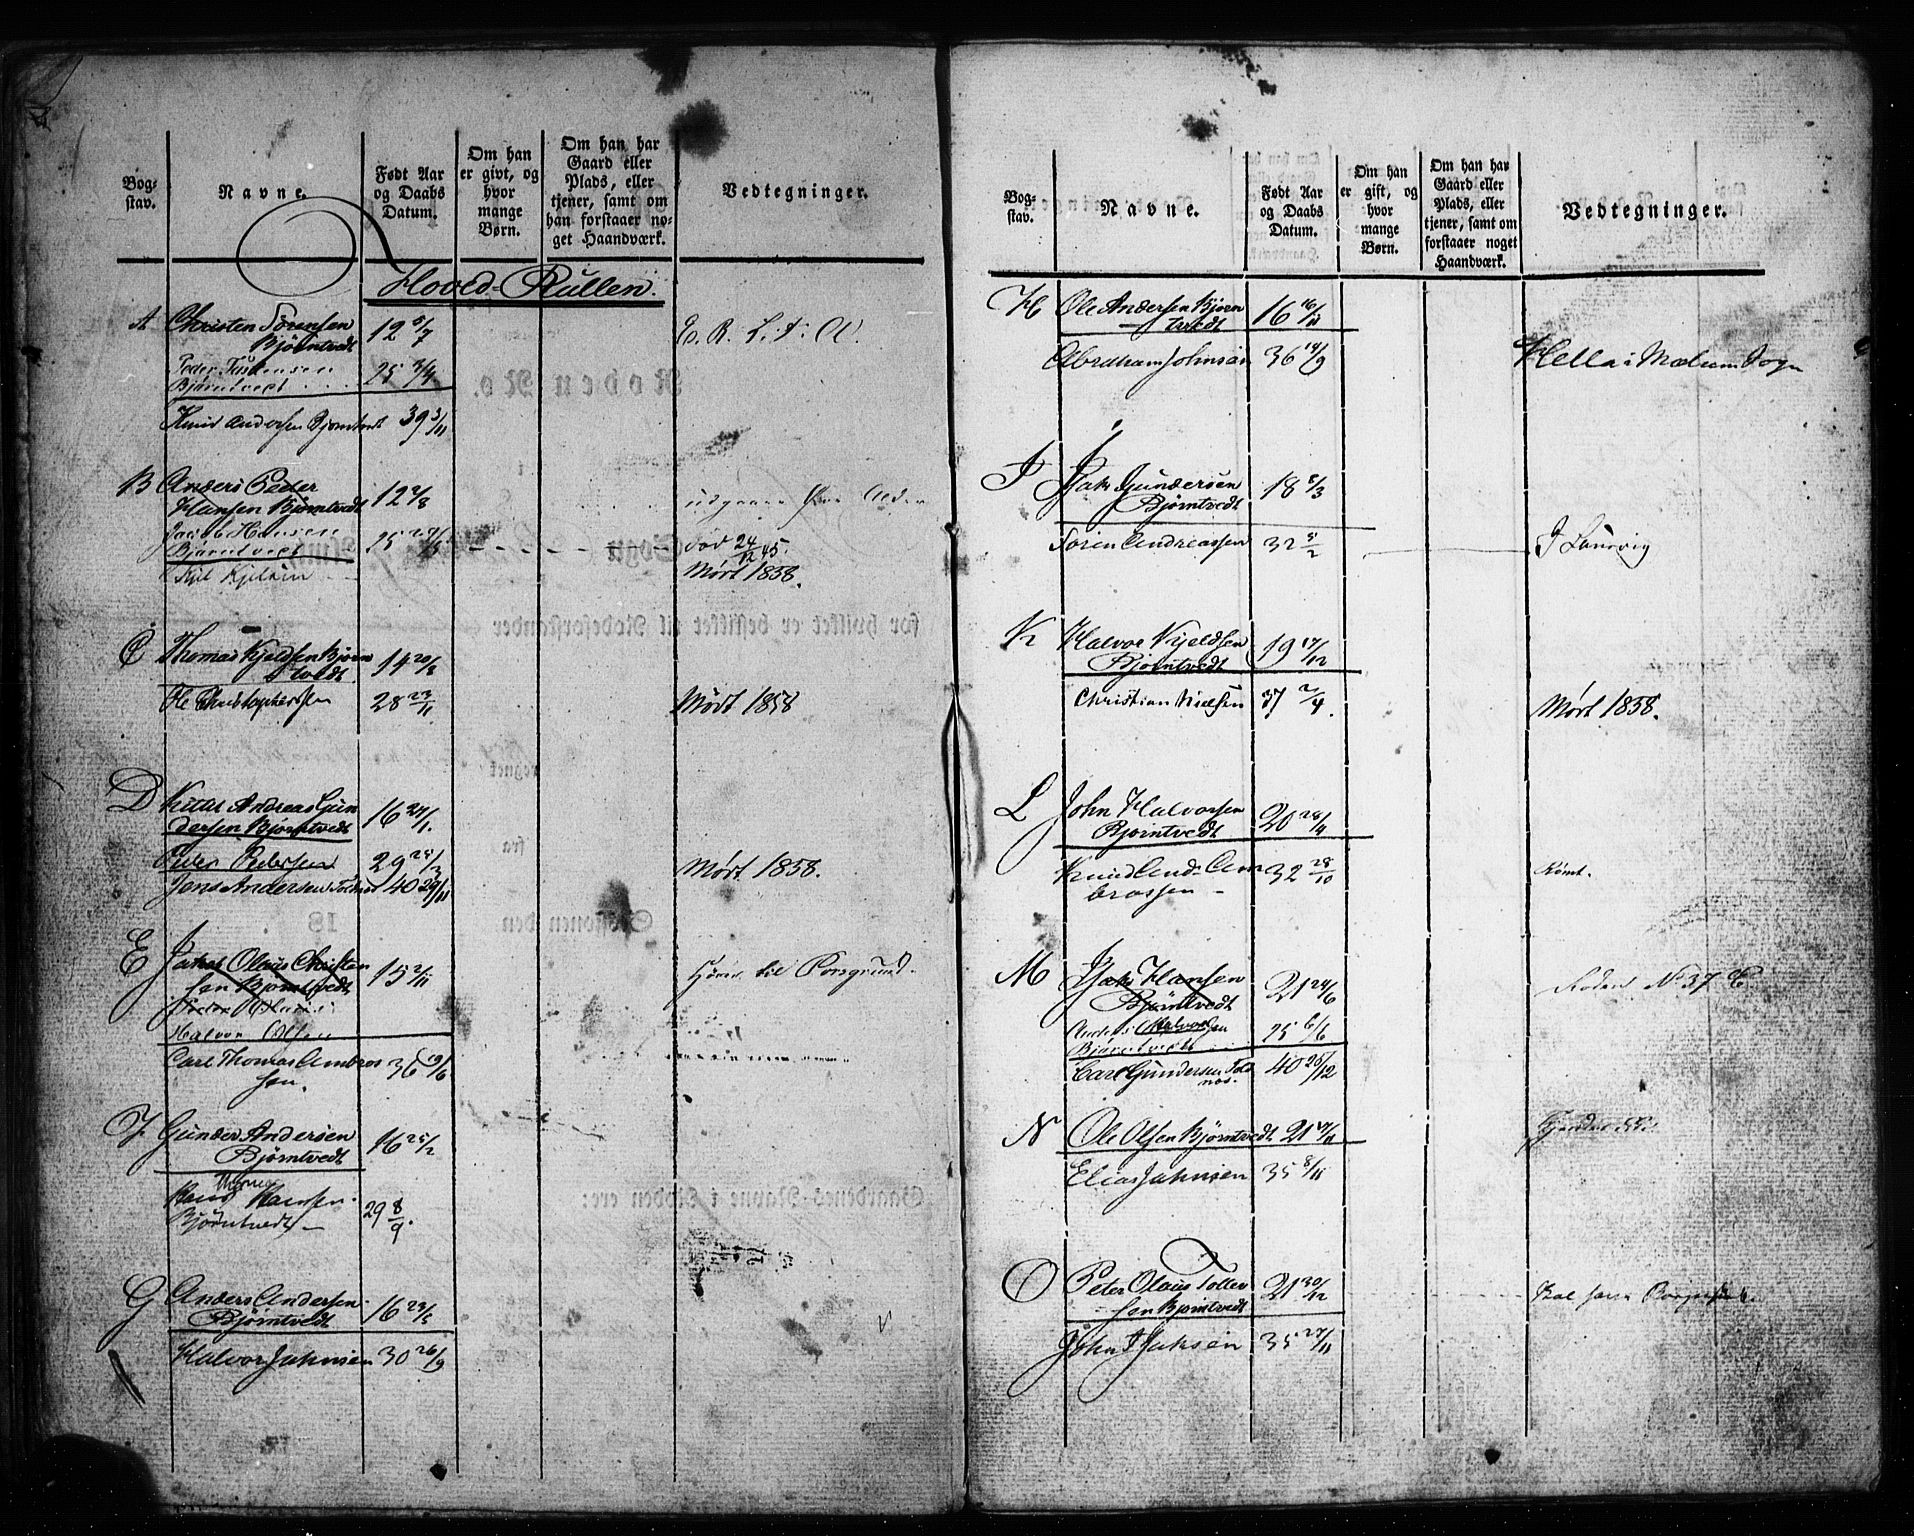 Bog-
stav.
Navne.
Født Aar
og Daabs
Datum.
Om han
er givt, og
hvor
mange
Børn.
Om han har
Gaard eller
Plads, eller
tjener, samt om
han forstaaer no-
get Haandværk.
Vedtegninger.
Hoved-Rullen.
A Christen Sørensen 12 5/7
Bjørntvedt
Bjørntvedt 25 3/4
Knud Andersen Bjørntvedt 39 3/11
B Anders Peder
Hansen Bjørntvedt 12 2/8
Jacob Hansen
Bjørntvedt 25 Død 24/12 45.
Kjel Kjelsen Mørt 1858.
C Thomas Kjeldsen Bjørn
tvedt 14 20/8
Ole Christophersen 28 23/11 Mørt 1858
D Andreas Gun
dersen Bjørntvedt 16 27/1.
Peder Pedersen 29 Mørt 1858.
Jens Andersen 40 29/11
E Olaus Christen
sen Bjørntvedt 15 2/11 til Porsgrund.
Peder
Halvor Olsen
Carl Thomas Ambros 36 19/6
sen.
F Gunder Andersen 16 25/2
Bjørntvedt
Hansen
Bjørntvedt 29 8/9.
G Anders Andersen
Bjørntvedt 16 23/5
Halvor Jahnsen 30 26/9
Bog-
stav.
Navne.
Født Aar
og Daabs
Datum.
Om han
er gift, og
hvor
mange
Børn.
Om han har
Gaard eller
Plads, eller
tjener, samt om
forstaaer noget
Haandværk.
Vedtegninger.
H Ole Andersen Bjørn
tvedt 16 16/11
Abraham Johnsen 36 14/9 Hella i Mælum Sogn
I Gundersen
Bjørntvedt 18 5/3
Søren Andreassen 32 5/2 I Laurvig
K Halvor Kjeldsen
Bjørntvedt 19 17/12
Christian Nielsen 37 2/4. Mørt 1858.
L John Halvorsen
Bjørntvedt 20 28/4
Knud And. Am 32 28/10 Rømt.
brossen
M Hansen
Bjørntvedt 21 24/6 No 37
Halvorsen
Bjørntvedt 25 6/6
Carl Gundersen 40 26/12
N Ole Olsen Bjørntvedt 21 17/11
Elias Jahnsen 35 8/11
O Peter Olaus Tolle
sen Bjørntvedt 21 30/12
John 35 27/11